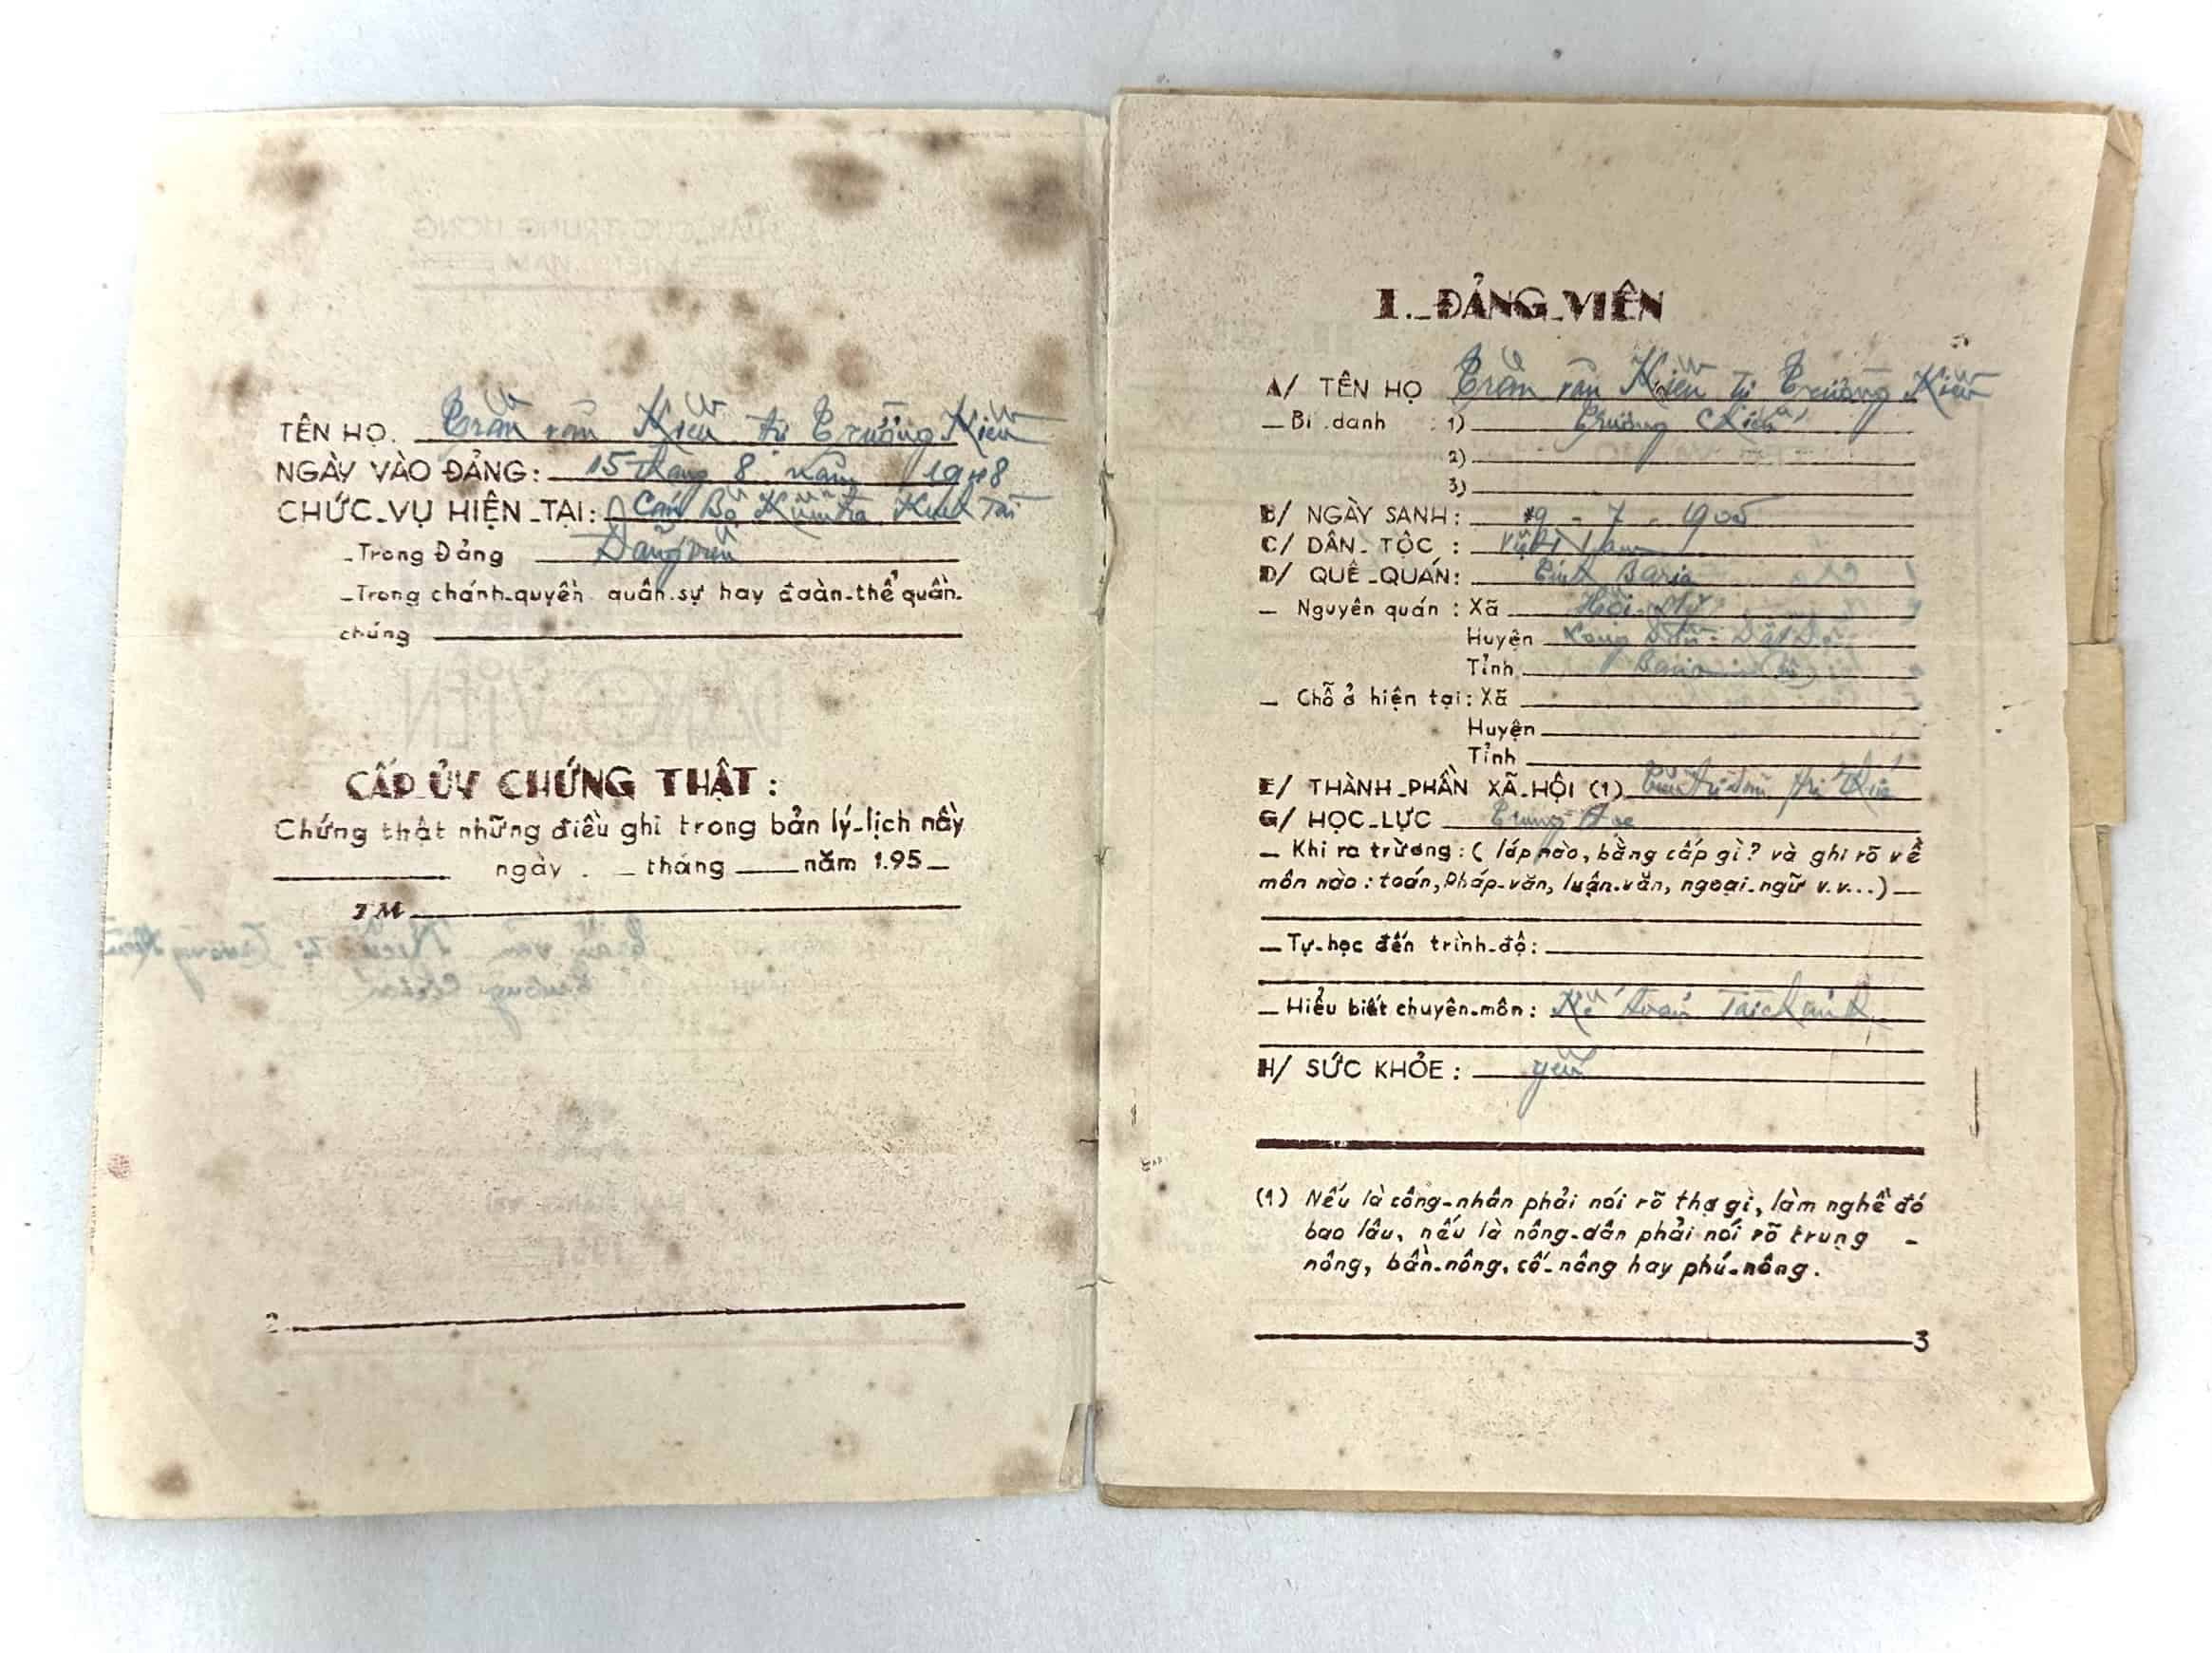 TÊN HỌ. Trần văn Kiều tự Trường Kiều
NGÀY VÀO ĐẢNG: 15 tháng 8 năm 1948
CHỨC_VỤ HIỆN_TẠI: Cán Bộ Kiểm tra Kinh Tài
_Trong Đảng Đảng viên
_Trong chánh-quyền quân.sự hay đoàn-thể quần.
chúng
CẤP_ỦY CHỨNG THẬT:
Chứng thật những điều ghi trong bản lý-lịch nầy
ngày . _ tháng ___ năm 1.95_
TM
2
I._ĐẢNG_VIÊN
A/ TÊN HỌ Trần văn Kiều tự Trường Kiều
_ Bí .danh : 1) Trường
2)
3)
B/ NGÀY SANH: 19 - 7 - 1905
C/ DÂN_ TỘC : Việt Nam
D/ QUÊ_QUÁN: Tỉnh Baria
_ Nguyên quán : Xã Hội-Mỹ
Huyện Long Điền - Đất Đỏ
Tỉnh Baria
_ Chỗ ở hiện tại: Xã
Huyện
Tỉnh
E/ THÀNH_PHẦN XÃ_HỘI (1) Tiểu tư sản trí thức
G/ HỌC_LỰC Trung Học
_ Khi ra trường: ( lớp nào, bằng cấp gì? và ghi rõ về
môn nào: toán, Pháp-văn, luận-văn, ngoại-ngữ v.v...)_
_ Tự-học đến trình-độ:
_ Hiểu biết chuyên-môn: Kế toán Tài chánh
H/ SỨC KHỎE : yếu
(1) Nếu là công-nhân phải nói rõ thợ gì, làm nghề đó
bao lâu, nếu là nông-dân phải nói rõ trung -
nông, bần-nông, cố-nông hay phú-nông.
3